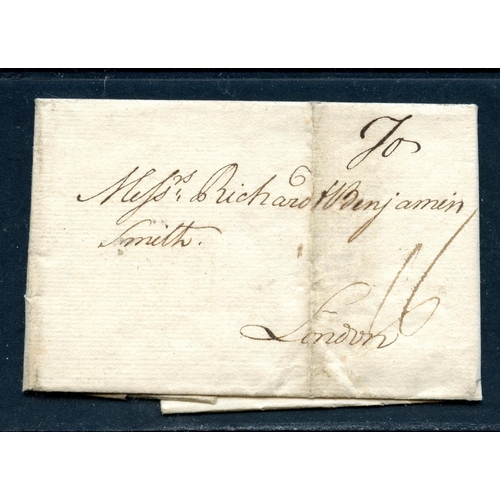 To
Messrs. Richard & Benjamin
Smith.
11
London